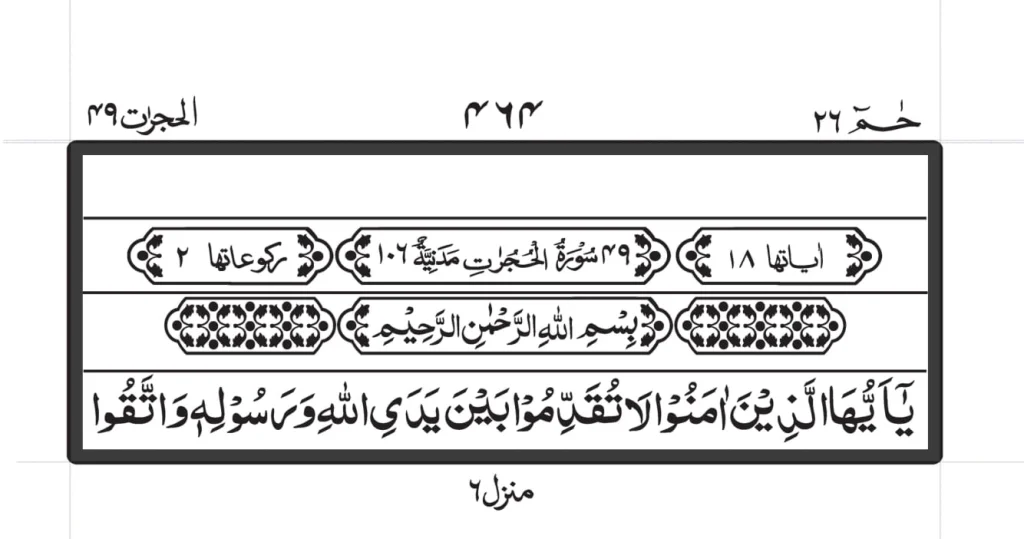 حٰمٓ ۲۶ ۴۶۴ الحجرٰت ۴۹
اٰیاتها ۱۸ ۴۹ سُوْرَةُ الْحُجُرٰتِ مَدَنِیَّةٌ ۱۰۶ رکوعاتها ۲
بِسْمِ اللّٰهِ الرَّحْمٰنِ الرَّحِیْمِ
یٰۤاَیُّهَا الَّذِیْنَ اٰمَنُوْا لَا تُقَدِّمُوْا بَیْنَ یَدَیِ اللّٰهِ وَ رَسُوْلِهٖ وَ اتَّقُوا
منزل ۶